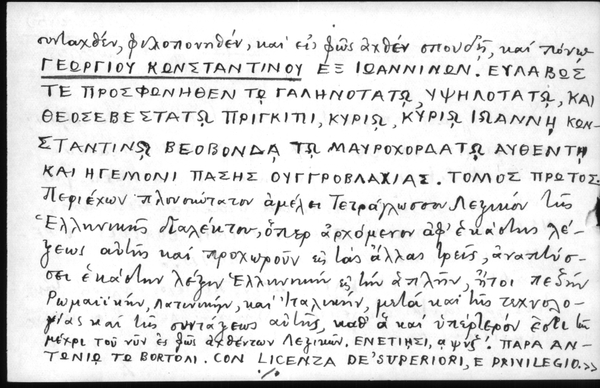 συνταχθέν, φιλοπονηθέν, καὶ εἰς φῶς ἀχθέν σπουδῇ, καὶ πόνῳ
ΓΕΩΡΓΙΟΥ ΚΩΝΣΤΑΝΤΙΝΟΥ ΕΞ ΙΩΑΝΝΙΝΩΝ. ΕΥΛΑΒΩΣ
ΤΕ ΠΡΟΣΦΩΝΗΘΕΝ Τῼ ΓΑΛΗΝΟΤΑΤῼ, ΥΨΗΛΟΤΑΤῼ, ΚΑΙ
ΘΕΟΣΕΒΕΣΤΑΤῼ ΠΡΙΓΚΙΠΙ, ΚΥΡΙῼ, ΚΥΡΙῼ ΙΩΑΝΝῌ ΚΩΝ-
ΣΤΑΝΤΙΝῼ ΒΕΟΒΟΝΔᾼ Τῼ ΜΑΥΡΟΧΟΡΔΑΤῼ ΑΥΘΕΝΤῌ
ΚΑΙ ΗΓΕΜΟΝΙ ΠΑΣΗΣ ΟΥΓΓΡΟΒΛΑΧΙΑΣ. ΤΟΜΟΣ ΠΡΩΤΟΣ.
Περιέχων πλουσιώτατον ἀμέλει Τετράγλωσσον Λεξικόν τῆς
Ἑλληνικῆς διαλέκτου, ὅπερ ἀρχόμενον ἀφ' ἑκάστης λέ-
ξεως αὐτῆς καὶ προχωροῦν εἰς τὰς ἄλλας τρεῖς, ἀναπτύσ-
σει ἑκάστην λέξιν Ἑλληνικήν εἰς τήν ἁπλῆν, ἤτοι πεζήν
Ρωμαϊκήν, Λατινικήν, καὶ Ἰταλικήν, μετά καὶ τῆς τεχνολο-
γίας καὶ τῆς συντάξεως αὐτῆς, καθ' ἅ καὶ ὑπέρτερόν ἐστι τῶν
μέχρι τοῦ νῦν εἰς φῶς ἀχθέντων Λεξικῶν. ΕΝΕΤΙΗΣΙ, ΠΑΡΑ ΑΝ-
ΤΩΝΙῼ Τῼ ΒΟRΤΟLΙ. CON LICENZA DE' SUPERIORI, E PRIVILEGIO.>>